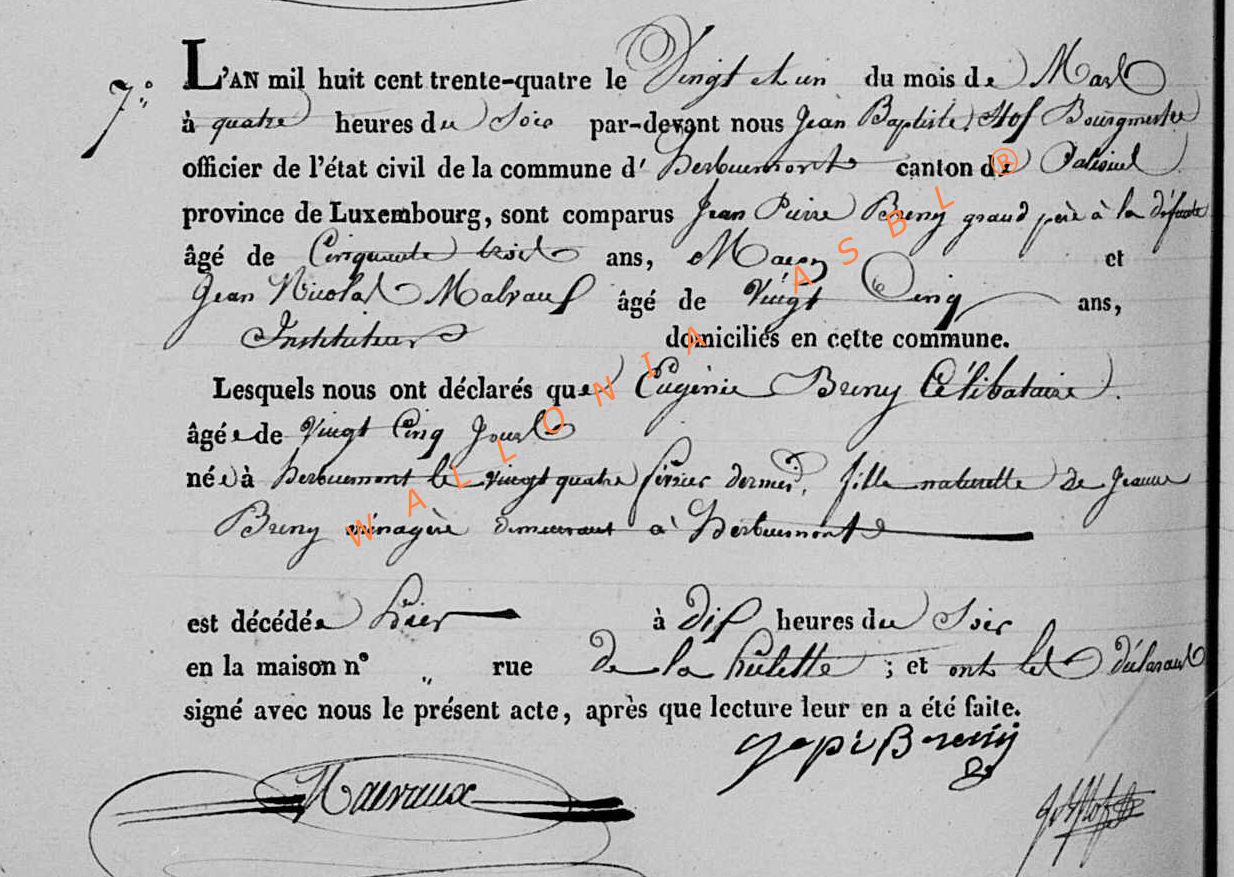 7.° L'AN mil huit cent trente-quatre le Vingt et un du mois de Mars
à quatre heures du Soir par-devant nous Jean Baptiste Hof Bourgmestre
officier de l'état civil de la commune d' herbeumont canton de Paliseul
province de Luxembourg, sont comparus Jean Pierre Breny grand père à la défunte
âgé de Cinquante trois ans, Maçon et
Jean Nicolas Malvaux âgé de Vingt Cinq ans,
Instituteur domiciliés en cette commune.
Lesquels nous ont déclarés que Eugénie Breny Célibataire
âgée de Vingt Cinq Jours
née à herbeumont le vingt quatre février dernier, fille naturelle de Jeanne
Breny ménagère demeurant à herbeumont
est décédée hier à dix heures du Soir
en la maison n° „ rue de la hulette ; et ont les déclarants
signé avec nous le présent acte, après que lecture leur en a été faite.
Breny
Malvaux
WALLONIA ASBL ®